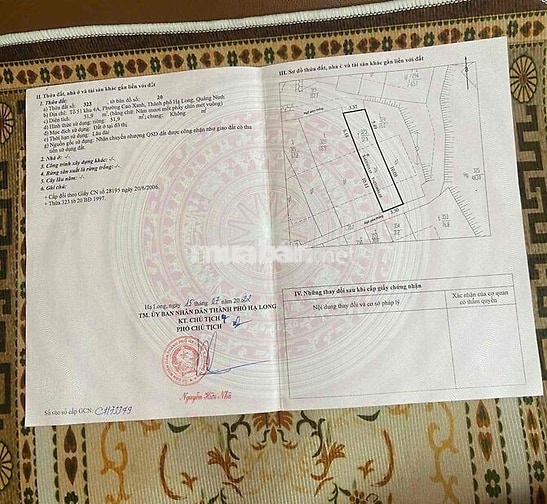 II. Thửa đất, nhà ở và tài sản khác gắn liền với đất
1. Thửa đất:
a) Thửa đất số: 323 , tờ bản đồ số: 20
b) Địa chỉ: Tổ 51 khu 4A, Phường Cao Xanh, Thành phố Hạ Long, Quảng Ninh
c) Diện tích: 51,9 m², (bằng chữ: Năm mươi mốt phẩy chín mét vuông)
d) Hình thức sử dụng: riêng: 51,9 m²; chung: Không m²
đ) Mục đích sử dụng: Đất ở tại đô thị
e) Thời hạn sử dụng: Lâu dài
g) Nguồn gốc sử dụng: Nhận chuyển nhượng QSD đất được công nhận như giao đất có thu
tiền sử dụng đất
2. Nhà ở: -/-
3. Công trình xây dựng khác: -/-
4. Rừng sản xuất là rừng trồng: -/-
5. Cây lâu năm: -/-
6. Ghi chú:
+ Cấp đổi theo Giấy CN số 28195 ngày 20/6/2006.
+ Thửa 323 tờ 20 BD 1997.
Hạ Long, ngày 15 tháng 07 năm 2022
TM. ỦY BAN NHÂN DÂN THÀNH PHỐ HẠ LONG
KT. CHỦ TỊCH
PHÓ CHỦ TỊCH
Nguyễn Hữu Nhã
Số vào sổ cấp GCN:
III. Sơ đồ thửa đất, nhà ở và tài sản khác gắn liền với đất
IV. Những thay đổi sau khi cấp giấy chứng nhận
Nội dung thay đổi và cơ sở pháp lý
Xác nhận của cơ quan
có thẩm quyền
muaban.net